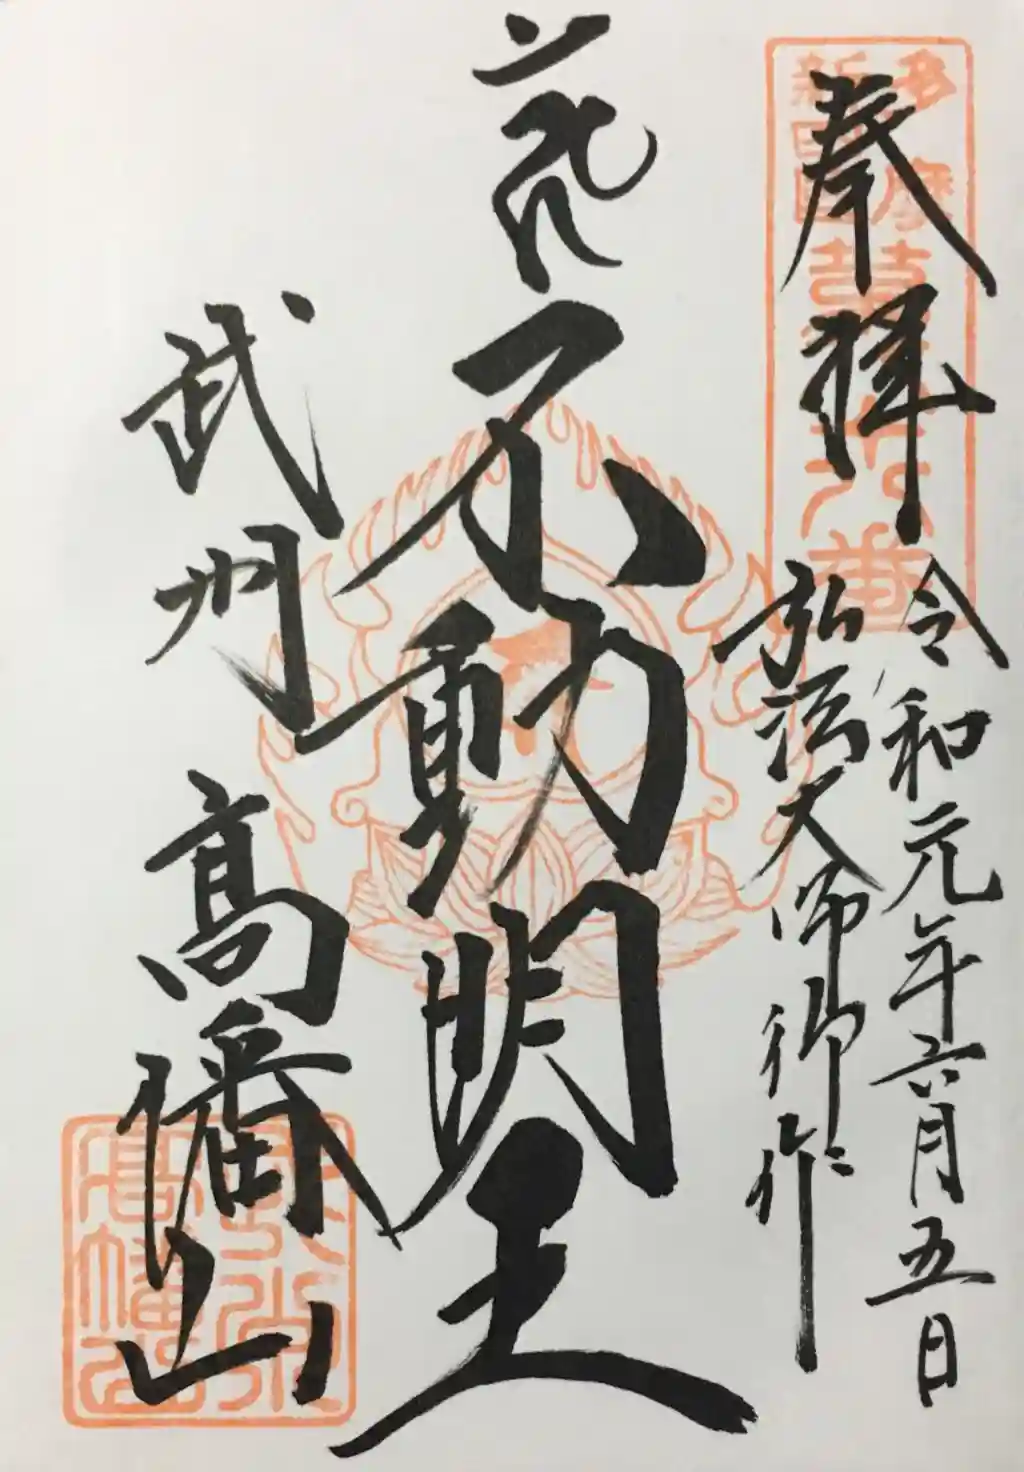 奉拝
令和元年六月五日
弘法大師御作
不動明王
武州
髙幡山
多摩
新四国